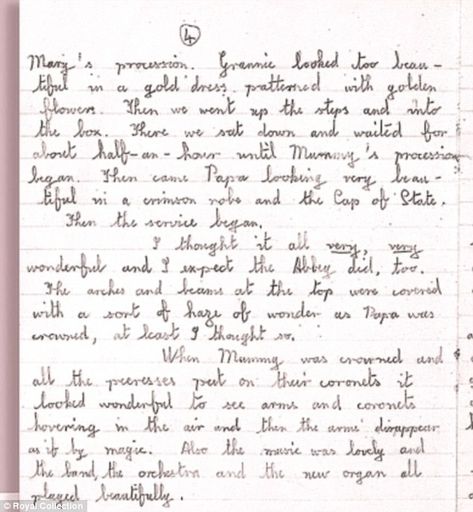 4
Mary's procession. Grannie looked too beau-
tiful in a gold dress patterned with golden
flowers. Then we went up the steps and into
the box. There we sat down and waited for
about half-an-hour until Mummy's procession
began. Then came Papa looking very beau-
tiful in a crimson robe and the Cap of State.
Then the service began.
I thought it all very, very
wonderful and I expect the Abbey did, too.
The arches and beams at the top were covered
with a sort of haze of wonder as Papa was
crowned, at least I thought so.
When Mummy was crowned and
all the peeresses put on their coronets it
looked wonderful to see arms and coronets
hovering in the air and then the arms disappear
as if by magic. Also the music was lovely and
the band, the orchestra and the new organ all
played beautifully.
© Royal Collection